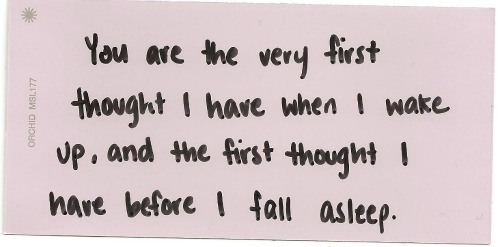 You are the very first
thought I have when I wake
up, and the first thought I
have before I fall asleep.
ORCHID MSL177